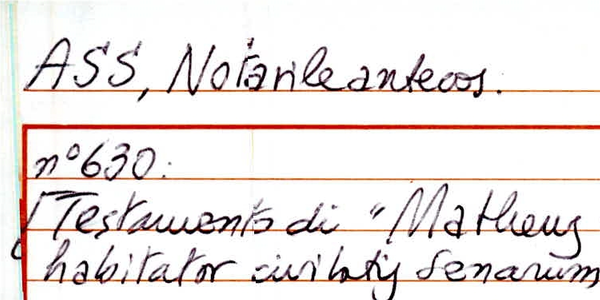 ASS, Notarile antecos.
n° 630:
Testamento di "Matheus
habitator civitatis Senarum